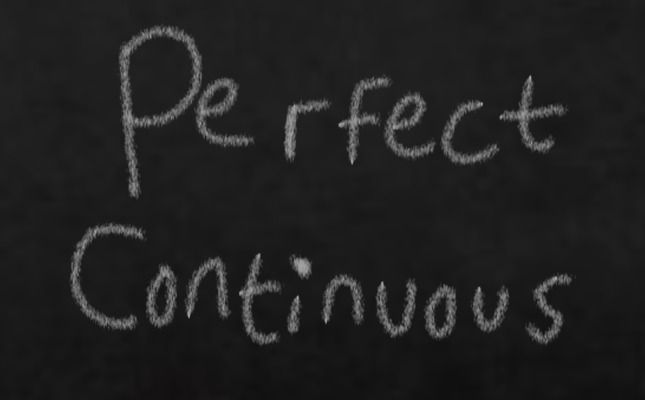 Perfect
Continuous